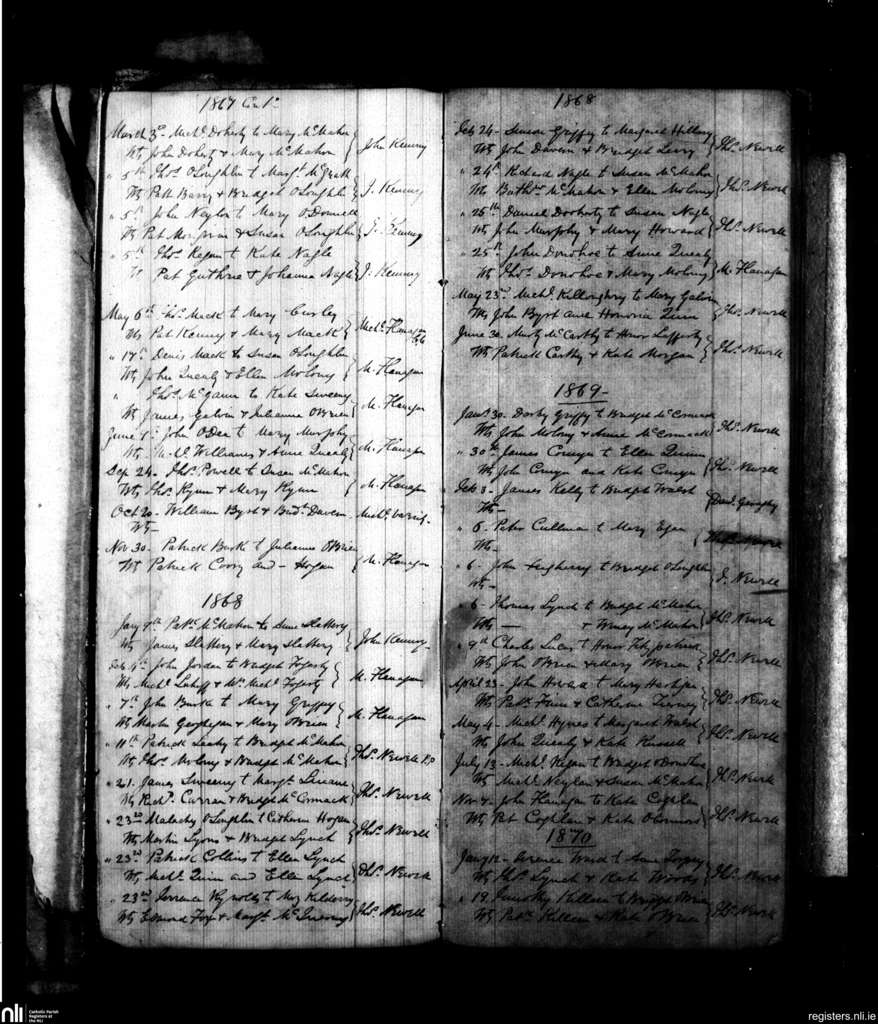 1867 Con.
March 3rd Michl Doherty to Mary McMahon
Wts John Doherty & Mary McMahon } John Kenny
" 5th Thos O'Loughlin to Margt McGrath
Wts Patk Barry & Bridget O'Loughlin } J. Kenny
" 5th John Neylon to Mary O'Donnell
Wts Pat & Susan O'Loughlin } J. Kenny
" 5th Thos Regan to Kate Nagle
Wts Pat Guthrie & Johanna Nagle } J. Kenny
May 6th Thos Mack to Mary Curley
Wts Pat Kenny & Mary Mack } Michl Flanagan
" 17th Denis Mack to Susan O'Loughlin
Wts John Quealy & Ellen Molony } M. Flanagan
" Thos McGann to Kate Sweeny
Wts James Galvin & Julianna O'Brien } M. Flanagan
June 1st John O'Dea to Mary Murphy
Wts Williams & Anne Quealy } M. Flanagan
Sep 24. Thos Powell to Susan McMahon
Wts Thos Flynn & Mary Flynn } M. Flanagan
Oct 20 - William Byrt & Bridt Davern - Michl
Wts -
Nov 30 - Patrick Burke to Julianna O'Brien
Wts Patrick Corry and - Hogan } M. Flanagan
1868
Jany 7th Patk McMahon to Anne Slattery
Wts James Slattery & Mary Slattery } John Kenny
Feb 4th John Jordan to Bridget Fogarty
Wts Michl & Michl Fogarty } M. Flanagan
" 7th John Burke to Mary Griffey
Wts Martin Geoghegan & Mary O'Brien } M. Flanagan
" 11th Patrick Leahy to Bridget McMahon
Wts Thos Molony & Bridget McMahon } Thos Newell P.P.
" 21. James Sweeny to Margt
Wts Richd Curran & Bridget McCormack } Thos Newell
" 23rd Malachy O'Loughlin to Catherine Hogan
Wts Martin Lyons & Bridget Lynch } Thos Newell
" 23rd Patrick Collins to Ellen Lynch
Wts Michl Quinn and Ellen Lynch } Thos Newell
" 23rd Terrence Reynolds to Mary
Wts Edmond Foy & Margt } Thos Newell
1868
Feb 24 - Simon Griffey to Margaret Hillery
Wts John Davern & Bridget Leary } Thos Newell
" 24th Richard Nagle to Susan McMahon
Wts Bathw McMahon & Ellen Molony } Thos Newell
" 25th Daniel Dooherty to Susan Nagle
Wts John Murphy & Mary Howard } Thos Newell
" 25th John Donohoe to Anne Quealy
Wts Thos Donohoe & Mary Molony } M. Flanagan
May 23rd Michl Killoughry to Mary Galvin
Wts John Byrt and Honoria Quin } Thos Newell
June 30 - Murty McCarthy to Honor Lafferty
Wts Patrick Carthy & Kate Morgan } Thos Newell
1869 -
Jany 30 - Darby Griffey to Bridget McCormack
Wts John Molony & Anne McCormack } Thos Newell
" 30th James Conyn to Ellen Quinn
Wts John Conyn and Kate Conyn } Thos Newell
Feb 3 - James Kelly to Bridget Walsh
Wts -
" 6 - Peter Cullinan to Mary Egan
Wts -
" 6 - John to Bridget O'Loughlin
Wts - } J. Newell
" 6 - Thomas Lynch to Bridget McMahon
Wts - & Winny McMahon } Thos Newell
" 9th Charles Lucas to Honor Fitzpatrick
Wts John O'Brien & Mary O'Brien } Thos Newell
April 23 - John to Mary
Wts Patk & Catherine Tierney } Thos Newell
May 4 - Michl Hynes to Margaret Walsh
Wts John Quealy & Kate Russell } Thos Newell
July 13 - Michl Regan to Bridget O'Donohoe
Wts Michl Neylan & Susan McMahon } Thos Newell
Nov 4 - John Flanagan to Kate Coghlan
Wts Pat Coghlan & Kate O'Connor } Thos Newell
1870
Jany 12 - Ward to Anne Torpey
Wts Thos Lynch & Kate Woods } Thos Newell
" 19. Timothy Killeen to Bridget O'Brien
Wts Patk Killeen & Kate O'Brien } Thos Newell
nli
Catholic Parish
Registers at
the NLI
registers.nli.ie